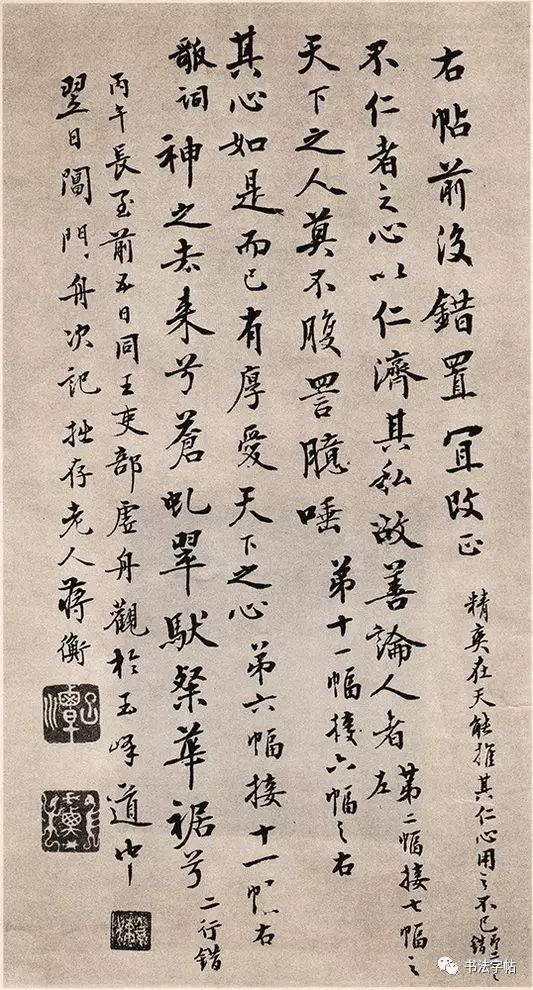 右帖前後錯置冝改正
精爽在天能推其仁心用之不已
不仁者之心以仁濟其私故善論人者 第二幅接七幅之左
天下之人莫不腹詈臆唾 第十一幅接六幅之右
其心如是而已有厚愛天下之心 第六幅接十一幅右
歌詞 神之去来兮蒼虬翠粲華裾兮 二行錯
丙午長至前五日同王吏部虛舟觀於玉峰道中
翌日閶門舟次記 拙存老人蔣衡
书法字帖